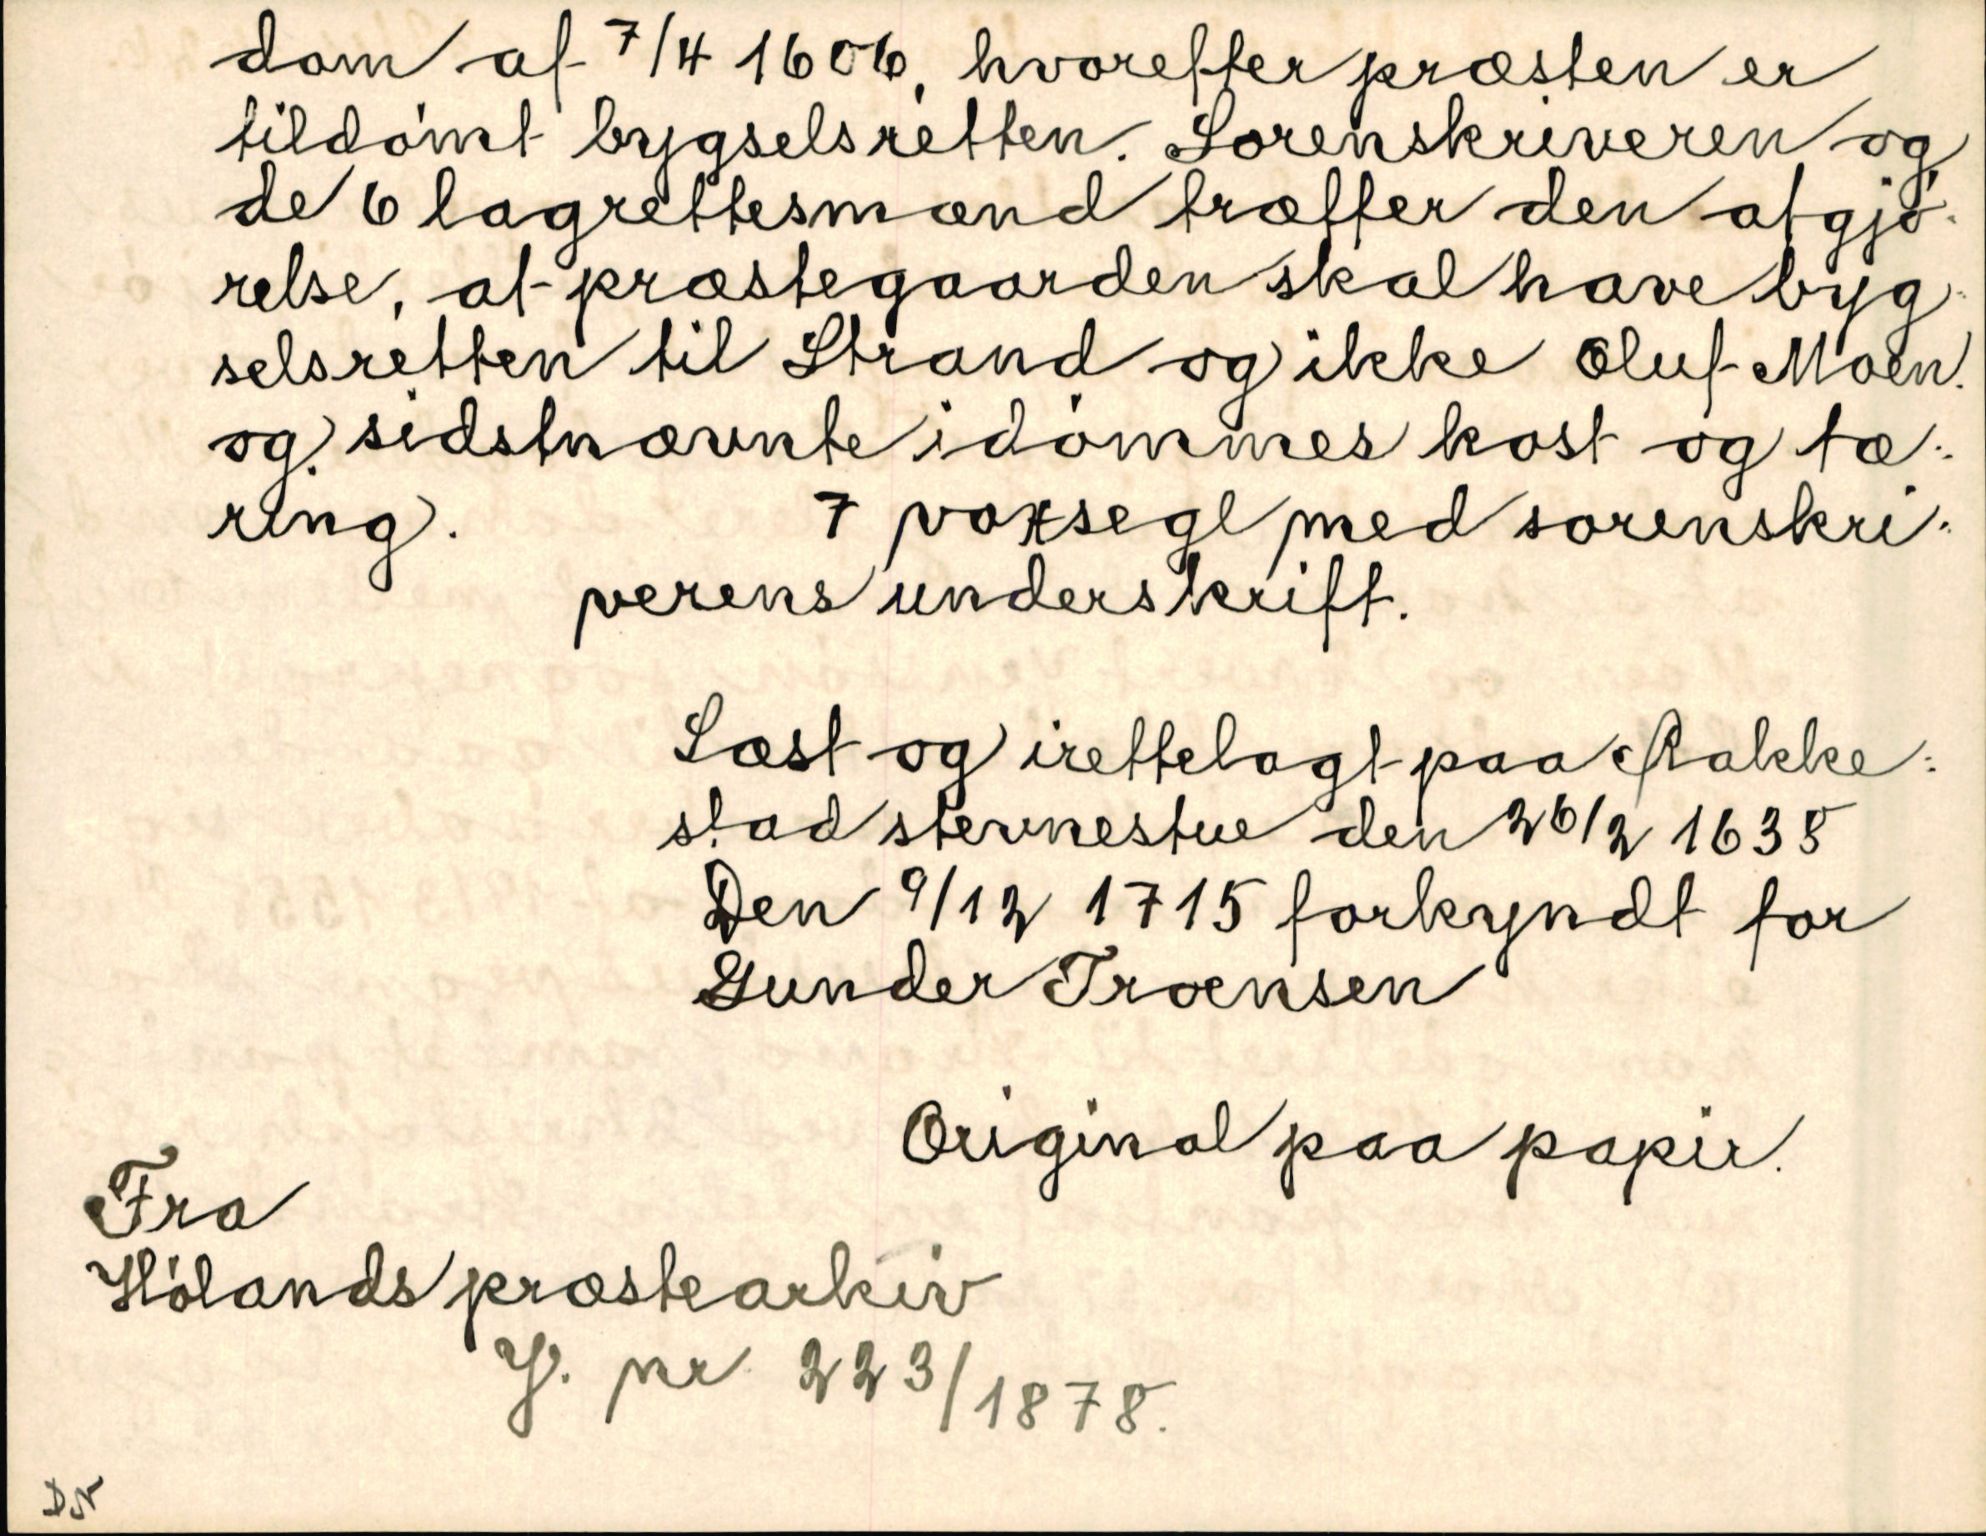 dom af 7/4 1606, hvorefter præsten er
tildømt bygselsretten. Sorenskriveren og
de 6 lagrettesmænd træffer den afgjø-
relse, at præstegaarden skal have byg-
selsretten til Strand og ikke Oluf Moen.
og sidstnævnte idømmes kost og tæ-
ring. 7 voxsegl med sorenskri-
verens underskrift.
Læst og irettelagt paa Rakke-
stad stevnestue den 26/2 1638
Den 9/12 1715 forkyndt for
Gunder Troensen
Original paa papir.
Fra
Hølands præstearkiv
J. nr 223/1878.